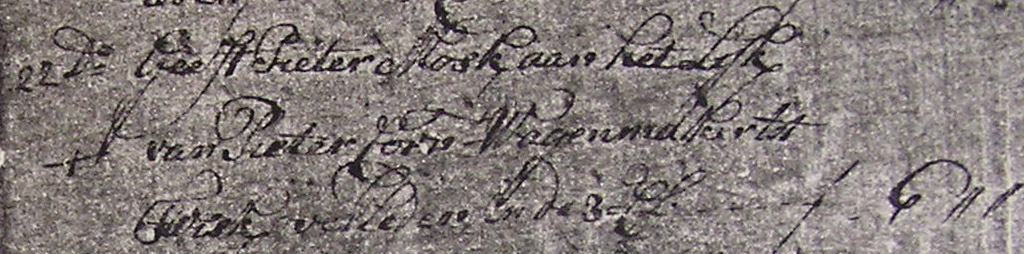 22 Do Geeft Pieter Mosk aan het Lijk
van Pieter Corn Wagenmaker tot
verleden in de 3 f 6